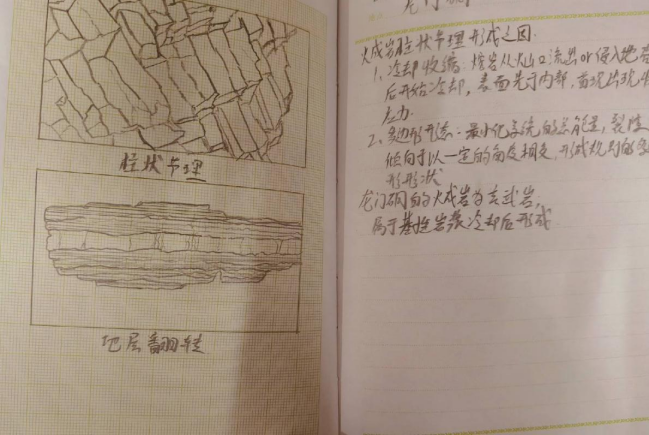 柱状节理
地层翻转
龙门
火成岩柱状节理形成之因:
1、冷却收缩:熔岩从火山口流出or侵入地壳
后开始冷却,表面先于内部,首先出现收
应力.
2、多边形形态-最小化系统的总能量,裂隙
倾向于以一定的角度相交,形成规则的多
形形状
龙门硐的火成岩为玄武岩,
属于基性岩浆冷却后形成